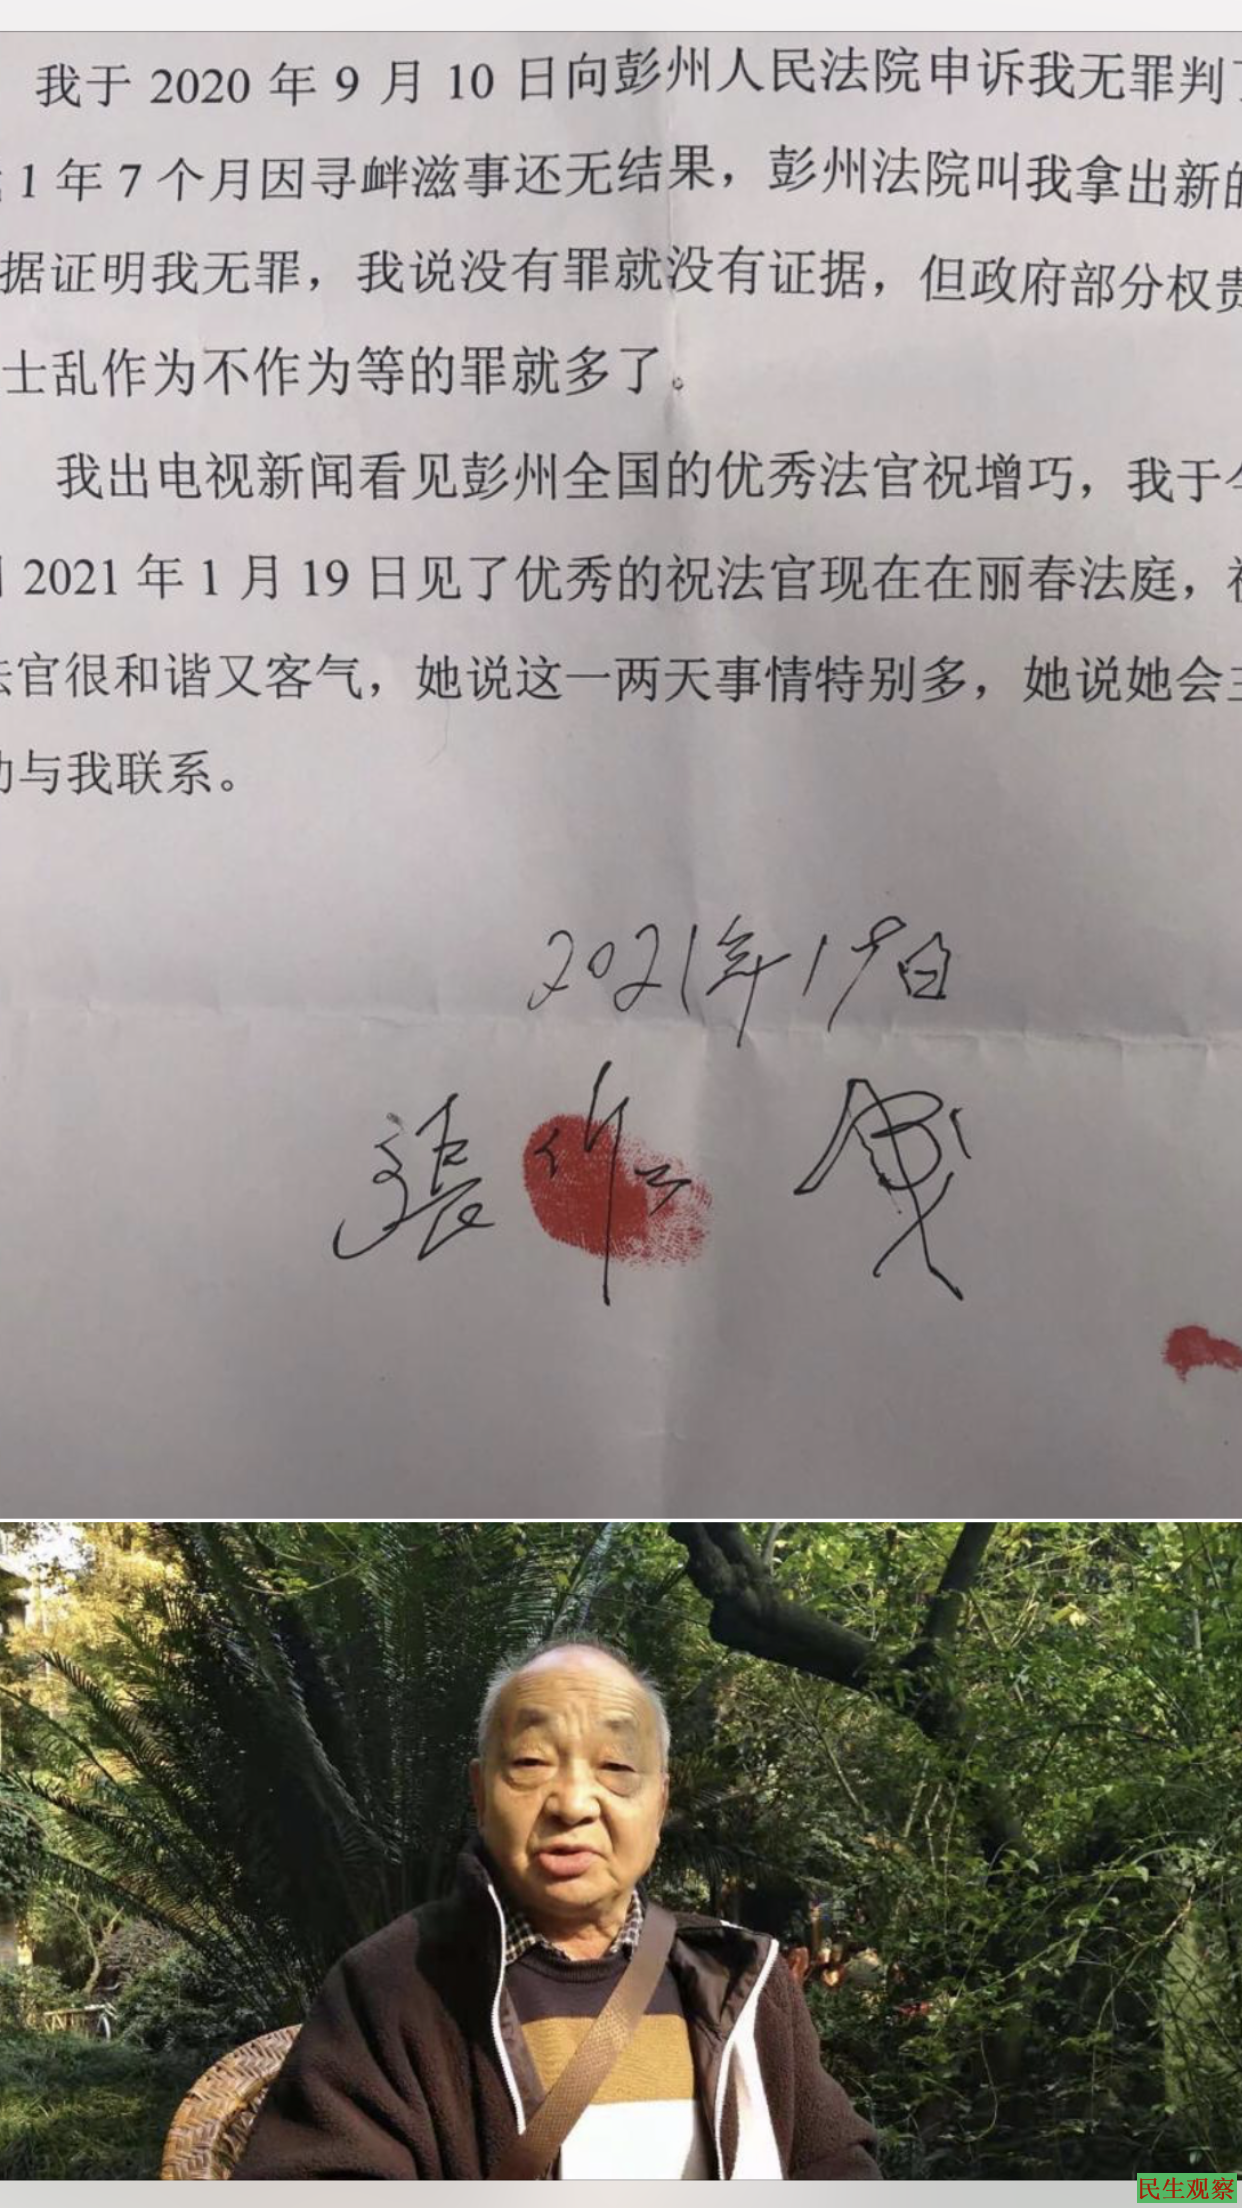 我于 2020 年 9 月 10 日向彭州人民法院申诉我无罪判
1 年 7 个月因寻衅滋事还无结果，彭州法院叫我拿出新的
据证明我无罪，我说没有罪就没有证据，但政府部分权贵
士乱作为不作为等的罪就多了。
我出电视新闻看见彭州全国的优秀法官祝增巧，我于
2021 年 1 月 19 日见了优秀的祝法官现在在丽春法庭，
法官很和谐又客气，她说这一两天事情特别多，她说她会主
动与我联系。
2021年1
張
民生观察